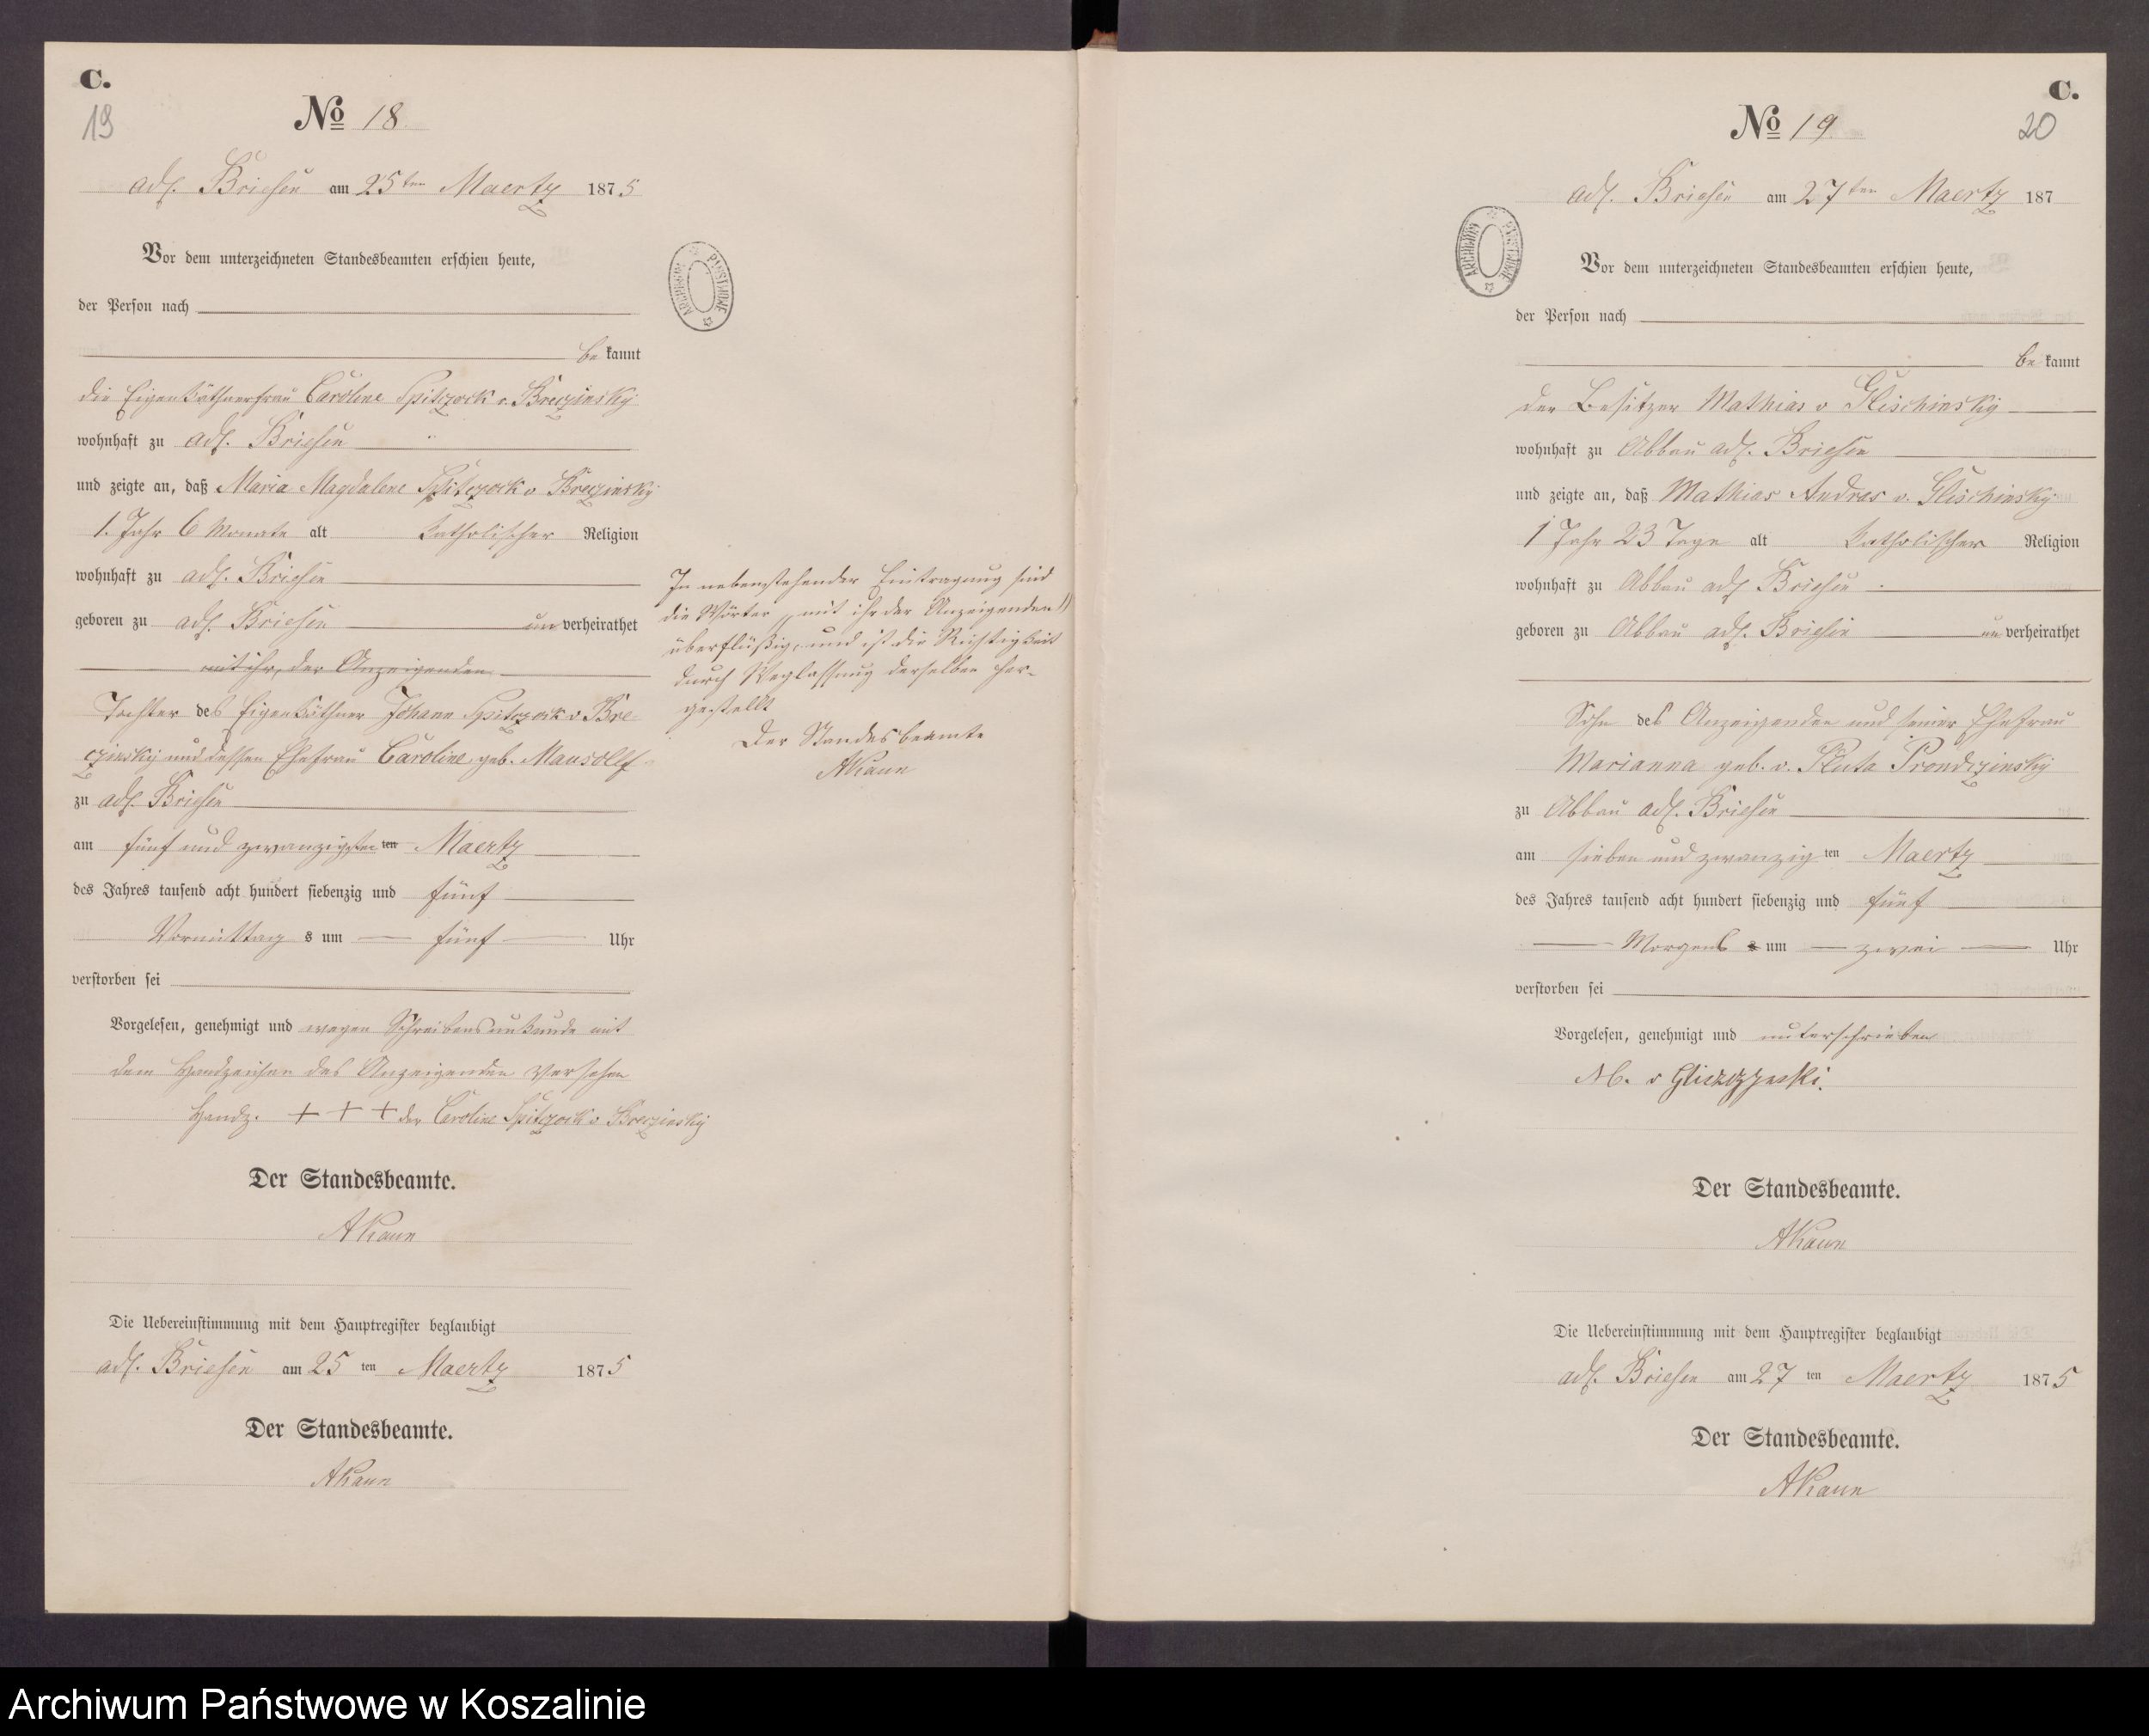 C.
19
No 18
adl. Briesen am 25ten Maertz 1875
Vor dem unterzeichneten Standesbeamten erschien heute,
der Person nach
be kannt
die Eigenkäthnerfrau Caroline Spitczock v. Breczinsky
wohnhaft zu adl. Briesen
und zeigte an, daß Maria Magdalene Spitczock v Breczinsky
1. Jahr 6 Monate alt katholischer Religion
wohnhaft zu adl. Briesen
geboren zu adl. Briesen un verheirathet
mit ihr, der Anzeigenden
Tochter des Eigenkäthner Johann Spitczock v Bre-
czinsky und dessen Ehefrau Caroline geb. Mausolff
zu adl. Briesen
am fünf und zwanzigsten ten Maertz
des Jahres tausend acht hundert siebenzig und fünf
Vormittag s um fünf Uhr
verstorben sei
Vorgelesen, genehmigt und wegen Schreibensunkunde mit
dem Handzeichen des Anzeigenden versehen
Handz. + + + der Caroline Spitczock v Breczinsky
Der Standesbeamte.
AKaun
Die Uebereinstimmung mit dem Hauptregister beglaubigt
adl. Briesen am 25 ten Maertz 1875
Der Standesbeamte.
AKaun
ARCHIWUM PAŃSTWOWE
In nebenstehender Eintragung sind
die Wörter „mit ihr der Anzeigenden"
überflüßig, und ist die Richtigkeit
durch Weglassung derselben her-
gestellt
Der Standesbeamte
AKaun
C.
20
No 19
adl. Briesen am 27ten Maertz 187
ARCHIWUM PAŃSTWOWE
Vor dem unterzeichneten Standesbeamten erschien heute,
der Person nach
be kannt
der Besitzer Mathias v Glischinsky
wohnhaft zu Abbau adl. Briesen
und zeigte an, daß Mathias Andras v. Glischinsky
1 Jahr 23 Tage alt katholischer Religion
wohnhaft zu Abbau adl. Briesen
geboren zu Abbau adl. Briesen un verheirathet
Sohn des Anzeigenden und seiner Ehefrau
Marianna geb. v. Pluta Prondczinsky
zu Abbau adl. Briesen
am sieben und zwanzig ten Maertz
des Jahres tausend acht hundert siebenzig und fünf
Morgens s um zwei Uhr
verstorben sei
Vorgelesen, genehmigt und unterschrieben
M. v Gliszczynski.
Der Standesbeamte.
AKaun
Die Uebereinstimmung mit dem Hauptregister beglaubigt
adl. Briesen am 27 ten Maertz 1875
Der Standesbeamte.
AKaun
Archiwum Państwowe w Koszalinie